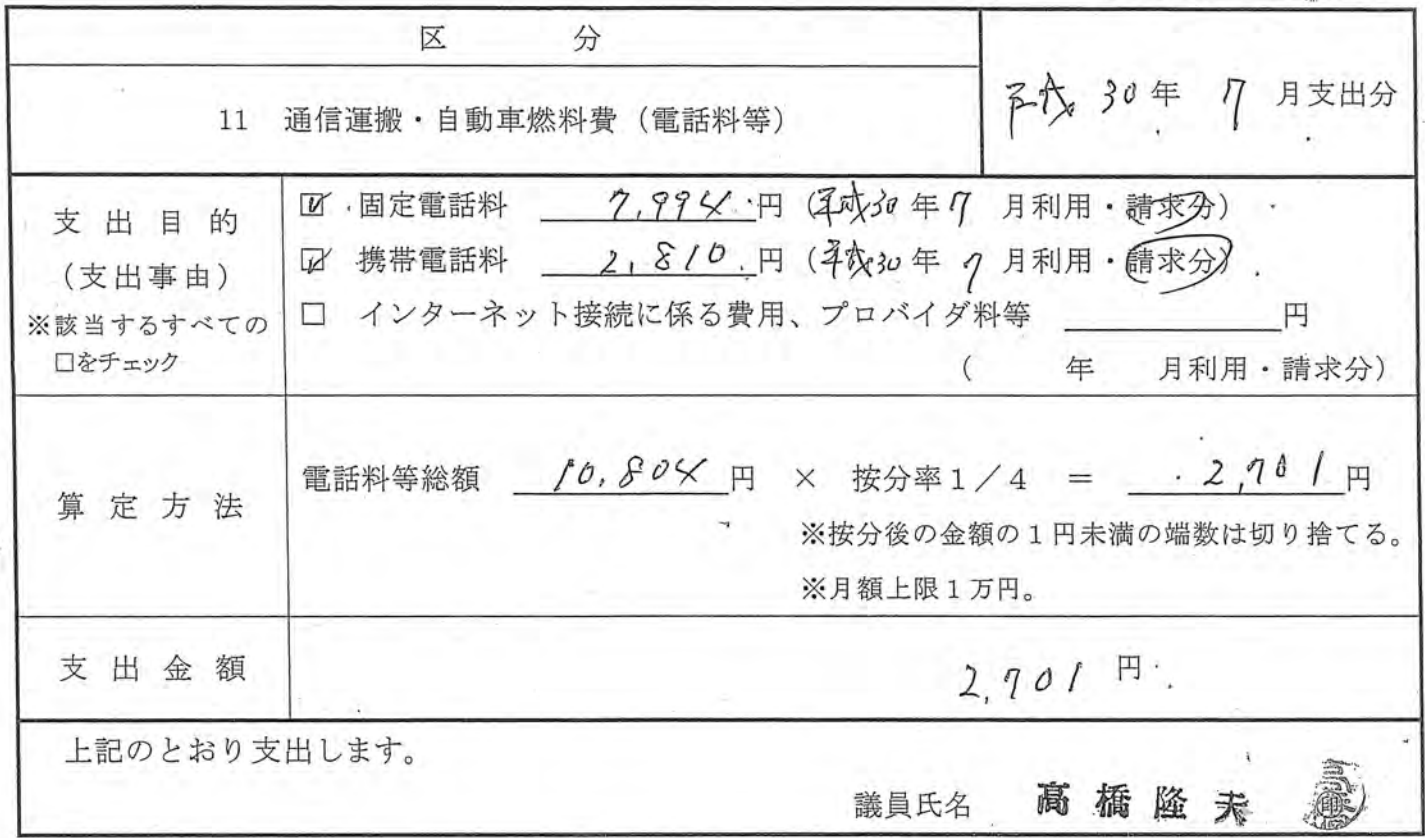 区 分
11 通信運搬・自動車燃料費(電話料等)
平成 30年 7 月支出分
支出目的
(支出事由)
※該当するすべての
□をチェック
☑ 固定電話料 7,994 円(平成30年7 月利用・請求分)
☑ 携帯電話料 2,810 円(平成30年 7 月利用・請求分)
□ インターネット接続に係る費用、プロバイダ料等 円
( 年 月利用・請求分)
算定方法
電話料等総額 10,804 円 × 按分率1/4 = 2,701 円
※按分後の金額の1円未満の端数は切り捨てる。
※月額上限1万円。
支出金額
2,701 円
上記のとおり支出します。
議員氏名 髙橋隆夫